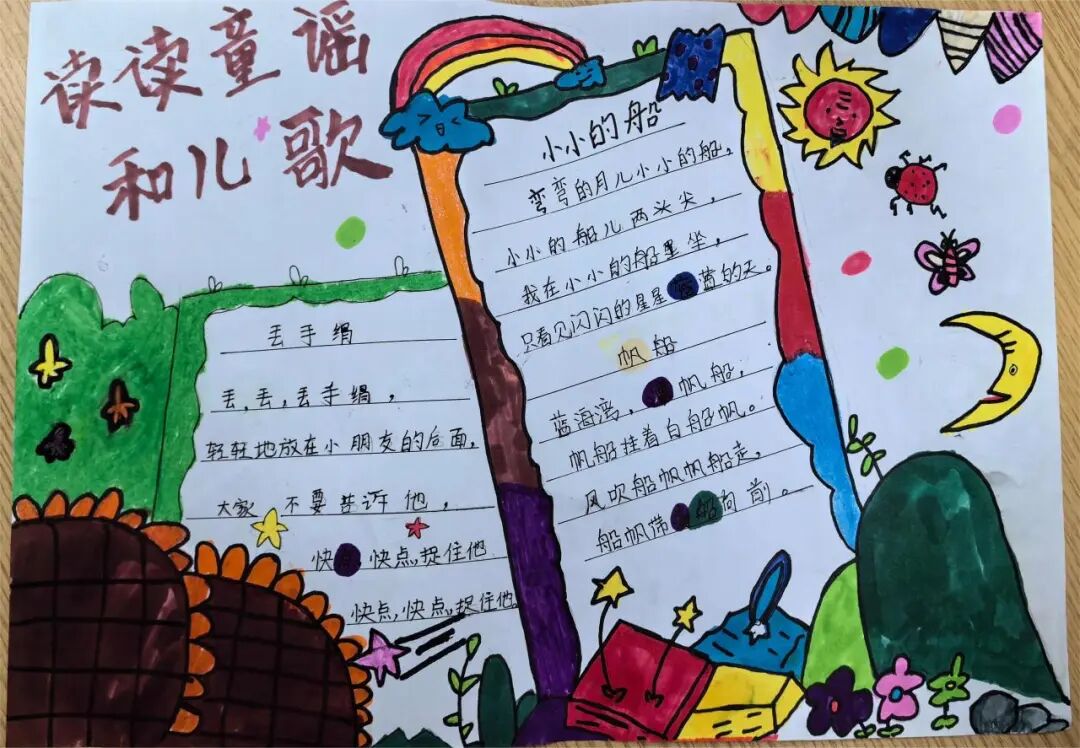 读读童谣
和儿歌
丢手绢
丢,丢,丢手绢,
轻轻地放在小朋友的后面,
大家不要告诉他,
快 快点,捉住他
快点,快点,捉住他。
小小的船
弯弯的月儿小小的船,
小小的船儿两头尖,
我在小小的船里坐,
只看见闪闪的星星 蓝的天。
帆船
蓝海湾, 帆船,
帆船挂着白船帆。
风吹船帆帆船走,
船帆带 船向前。